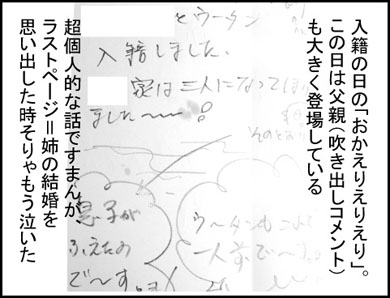 入籍の日の「おかえりえりえり」。
この日は父親(吹き出しコメント)
も大きく登場している
とウータン
入籍しました。
実は三人になって
ました〜
そのとおり
ウータンもこれで
一人前で〜す。
息子が
ふえたの
で〜す。
超個人的な話ですまんが
ラストページ=姉の結婚を
思い出した時そりゃもう泣いた